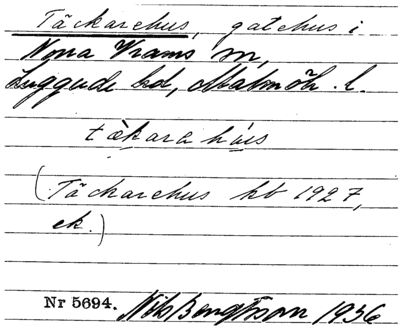 Täckarehus, gatehus i
Norra Vrams sn,
Luggude hd, Malmöh. l.
täkara húıs
(Täckarehus kb 1927,
ek.)
Nr 5694. Nils Bengtsson 1936